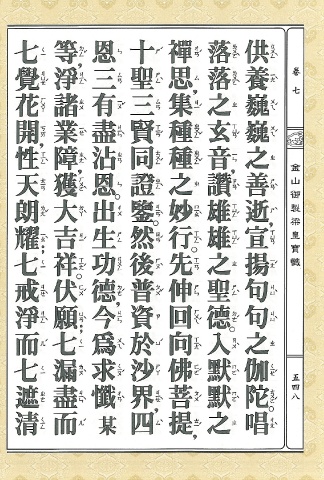 卷七
金山御製梁皇寶懺
五四八
供養巍巍之善逝，宣揚句句之伽陀。唱
落落之玄音，讚雄雄之聖德。入默默之
禪思，集種種之妙行。先伸回向佛菩提，
十聖三賢同證鑒。然後普資於沙界，四
恩三有盡沾恩。出生功德，今為求懺某
等，淨諸業障，獲大吉祥。伏願，七漏盡而
七覺花開，性天朗耀，七戒淨而七遮清